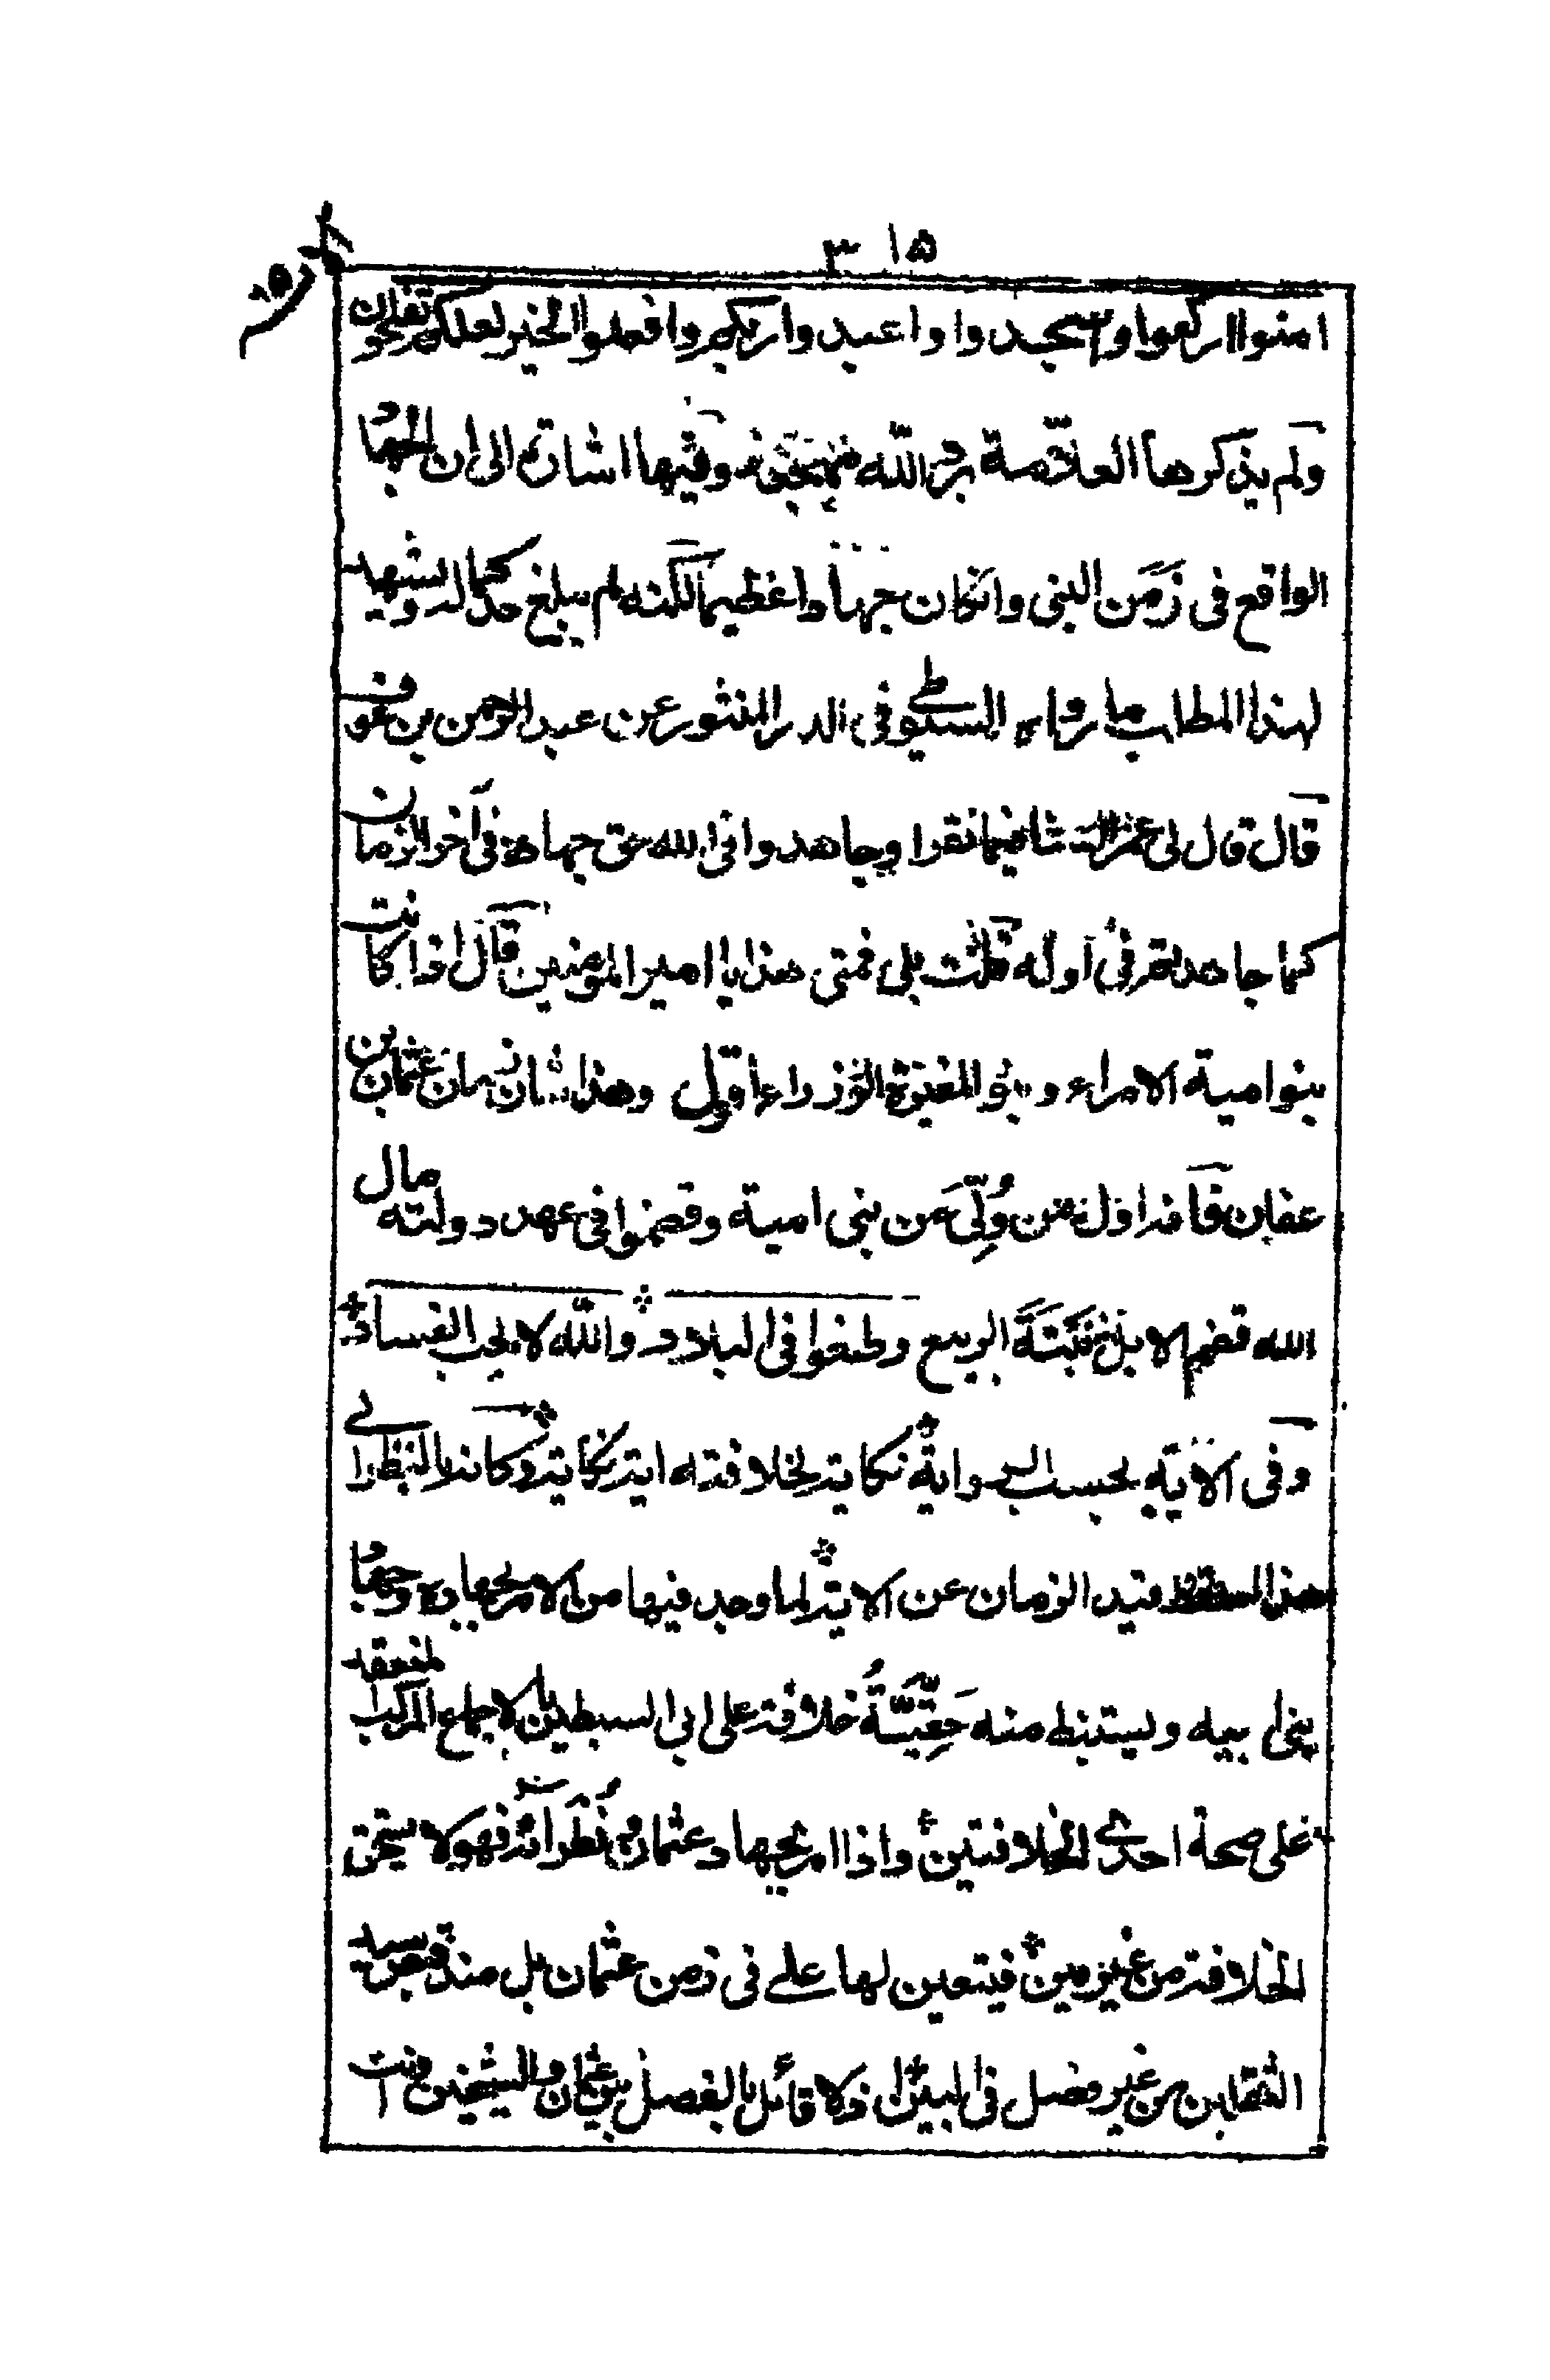 ٣١٥
امنوا اركعوا واسجدوا واعبدوا ربكم وافعلوا الخير لعلكم تفلحون
ولم يذكرها العلامة رح الله في نهجه وفيها اشارة الى ان الجهاد
الواقع في زمن النبي وانكان جهادا عظيما لكنه لم يبلغ حد كماله ويشهد
لهذا المطلب ما رواه السيوطي في الدر المنثور عن عبد الرحمن بن عوف
قال قال لي عمر السنا فيما نقرا وجاهدوا في الله حق جهاده في آخر الزمان
كما جاهدتم في اوله قلت بلى فمتى هذا يا امير المومنين قال اذا كانت
بنو امية الامراء وبنو المغيرة الوزراء اقول وهذا شان زمان عثمان بن
عفان فانه اول من ولي من بني امية وقضموا في عهد دولته مال
الله قضم الابل نبتة الربيع وطغوا في البلاد والله لا يحب الفساد
وفي الاية بحسب الرواية نكاية لخلافته اية نكاية وكانه بالنظر الى
هذا اسقط قيد الزمان عن الاية لما وجد فيها من الامر بجهاده وجهاد
بني ابيه ويستنبط منه حقية خلافة علي ابي السبطين بالاجماع المركب المنعقد
على صحة احدى الخلافتين واذا امر بجهاد عثمان ونظرائه فهو لا يستحق
الخلافة من غير مين فيتعين لها علي في زمن عثمان بل منذ قبض سيد
الثقلين من غير فصل في البين اذ لا قائل بالفصل بين عثمان والشيخين فثبت